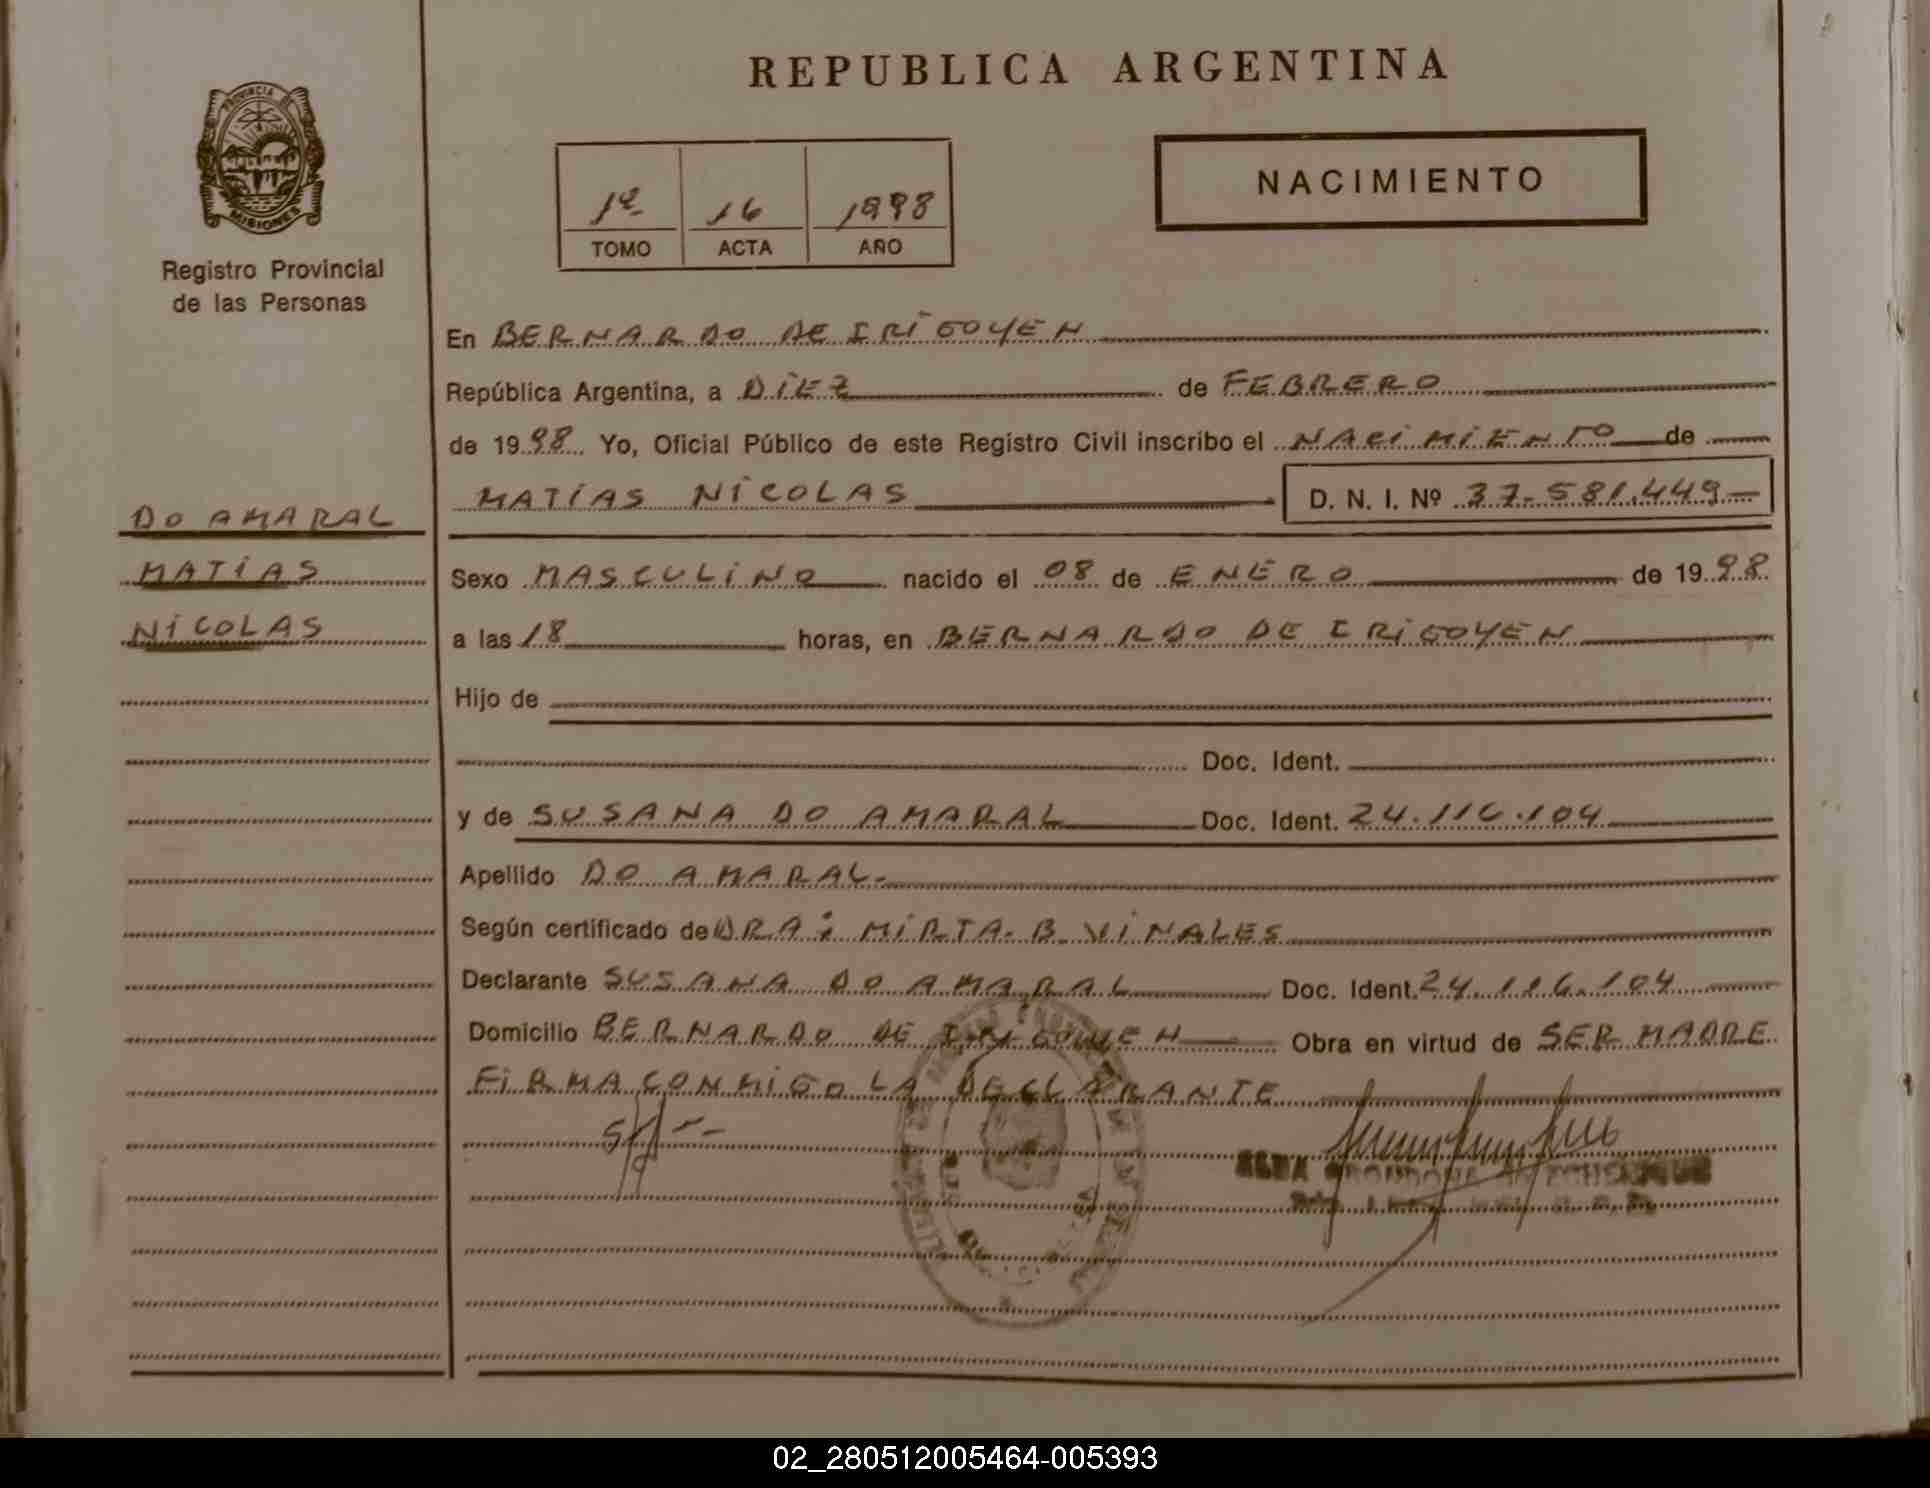 REPUBLICA ARGENTINA
PROVINCIA DE
MISIONES
Registro Provincial
de las Personas
1º 16 1998
TOMO ACTA AÑO
NACIMIENTO
En BERNARDO DE IRIGOYEN
República Argentina, a DIEZ de FEBRERO
de 1998 Yo, Oficial Público de este Registro Civil inscribo el NACIMIENTO de
MATIAS NICOLAS D. N. I. Nº 37.581.449
DO AMARAL
MATIAS
NICOLAS
Sexo MASCULINO nacido el 08 de ENERO de 1998
a las 18 horas, en BERNARDO DE IRIGOYEN
Hijo de
Doc. Ident.
y de SUSANA DO AMARAL Doc. Ident. 24.116.104
Apellido DO AMARAL.
Según certificado de DRA: MIRTA. B. VIÑALES
Declarante SUSANA DO AMARAL Doc. Ident. 24.116.104
Domicilio BERNARDO DE IRIGOYEN Obra en virtud de SER MADRE
FIRMA CONMIGO LA DECLARANTE
02_280512005464-005393